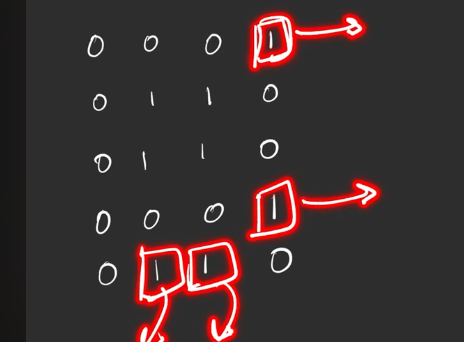 0 0 0 1
0 1 1 0
0 1 1 0
0 0 0 1
0 1 1 0